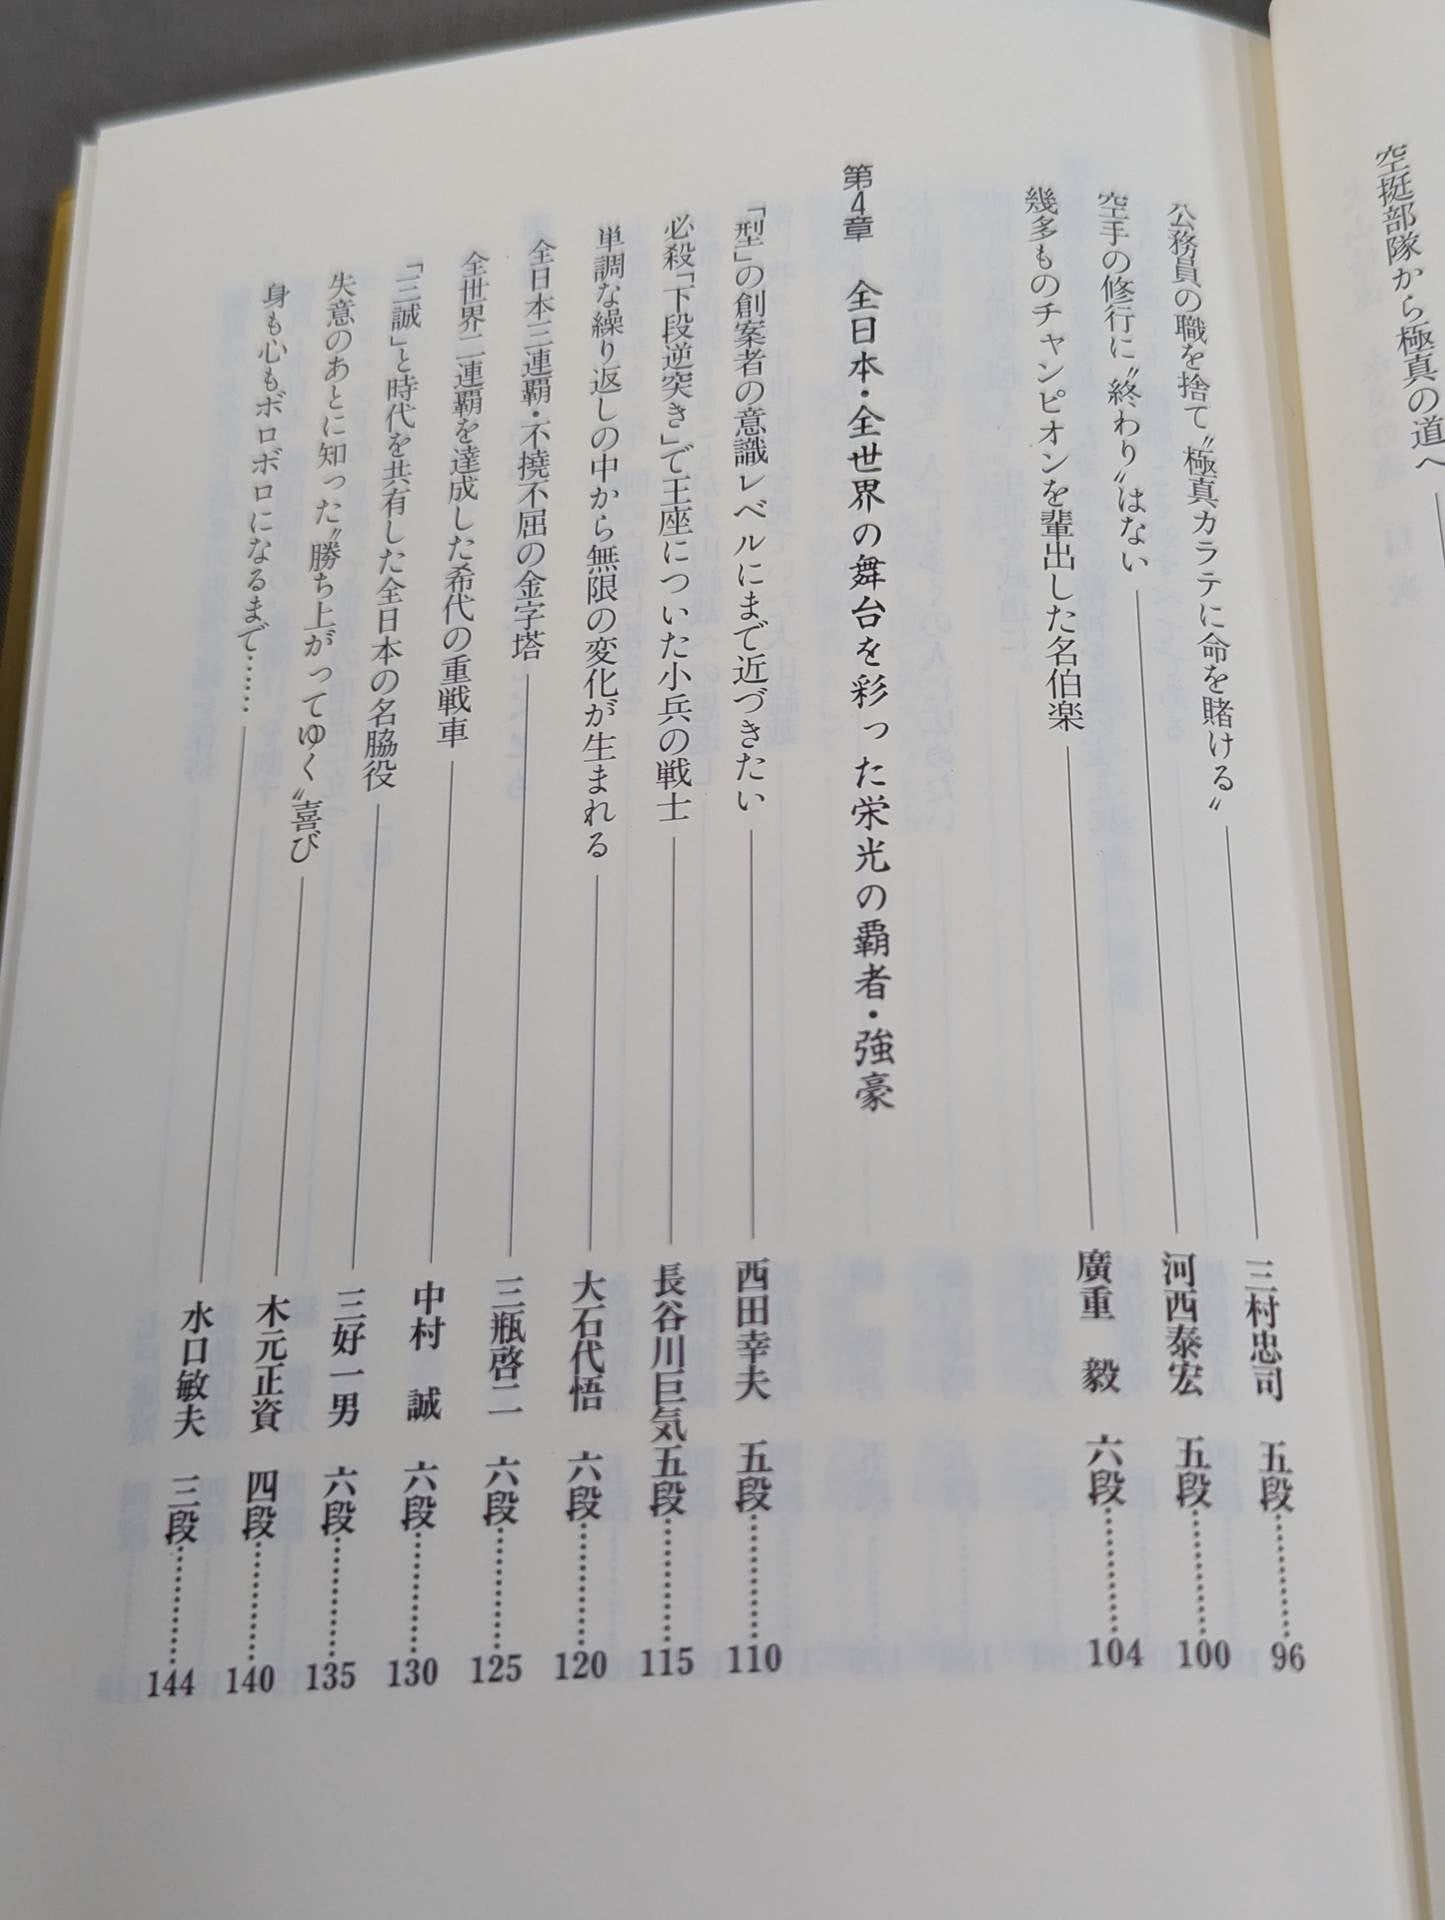 空挺部隊から極真の道へ
公務員の職を捨て〝極真カラテに命を賭ける〟 三村忠司 五段 96
空手の修行に〝終わり〟はない 河西泰宏 五段 100
幾多ものチャンピオンを輩出した名伯楽 廣重 毅 六段 104
第4章 全日本・全世界の舞台を彩った栄光の覇者・強豪
「型」の創案者の意識レベルにまで近づきたい 西田幸夫 五段 110
必殺「下段逆突き」で王座についた小兵の戦士 長谷川巨気 五段 115
単調な繰り返しの中から無限の変化が生まれる 大石代悟 六段 120
全日本三連覇・不撓不屈の金字塔 三瓶啓二 六段 125
全世界二連覇を達成した希代の重戦車 中村 誠 六段 130
「三誠」と時代を共有した全日本の名脇役 三好一男 六段 135
失意のあとに知った〝勝ち上がってゆく〟喜び 木元正資 四段 140
身も心もボロボロになるまで…… 水口敏夫 三段 144